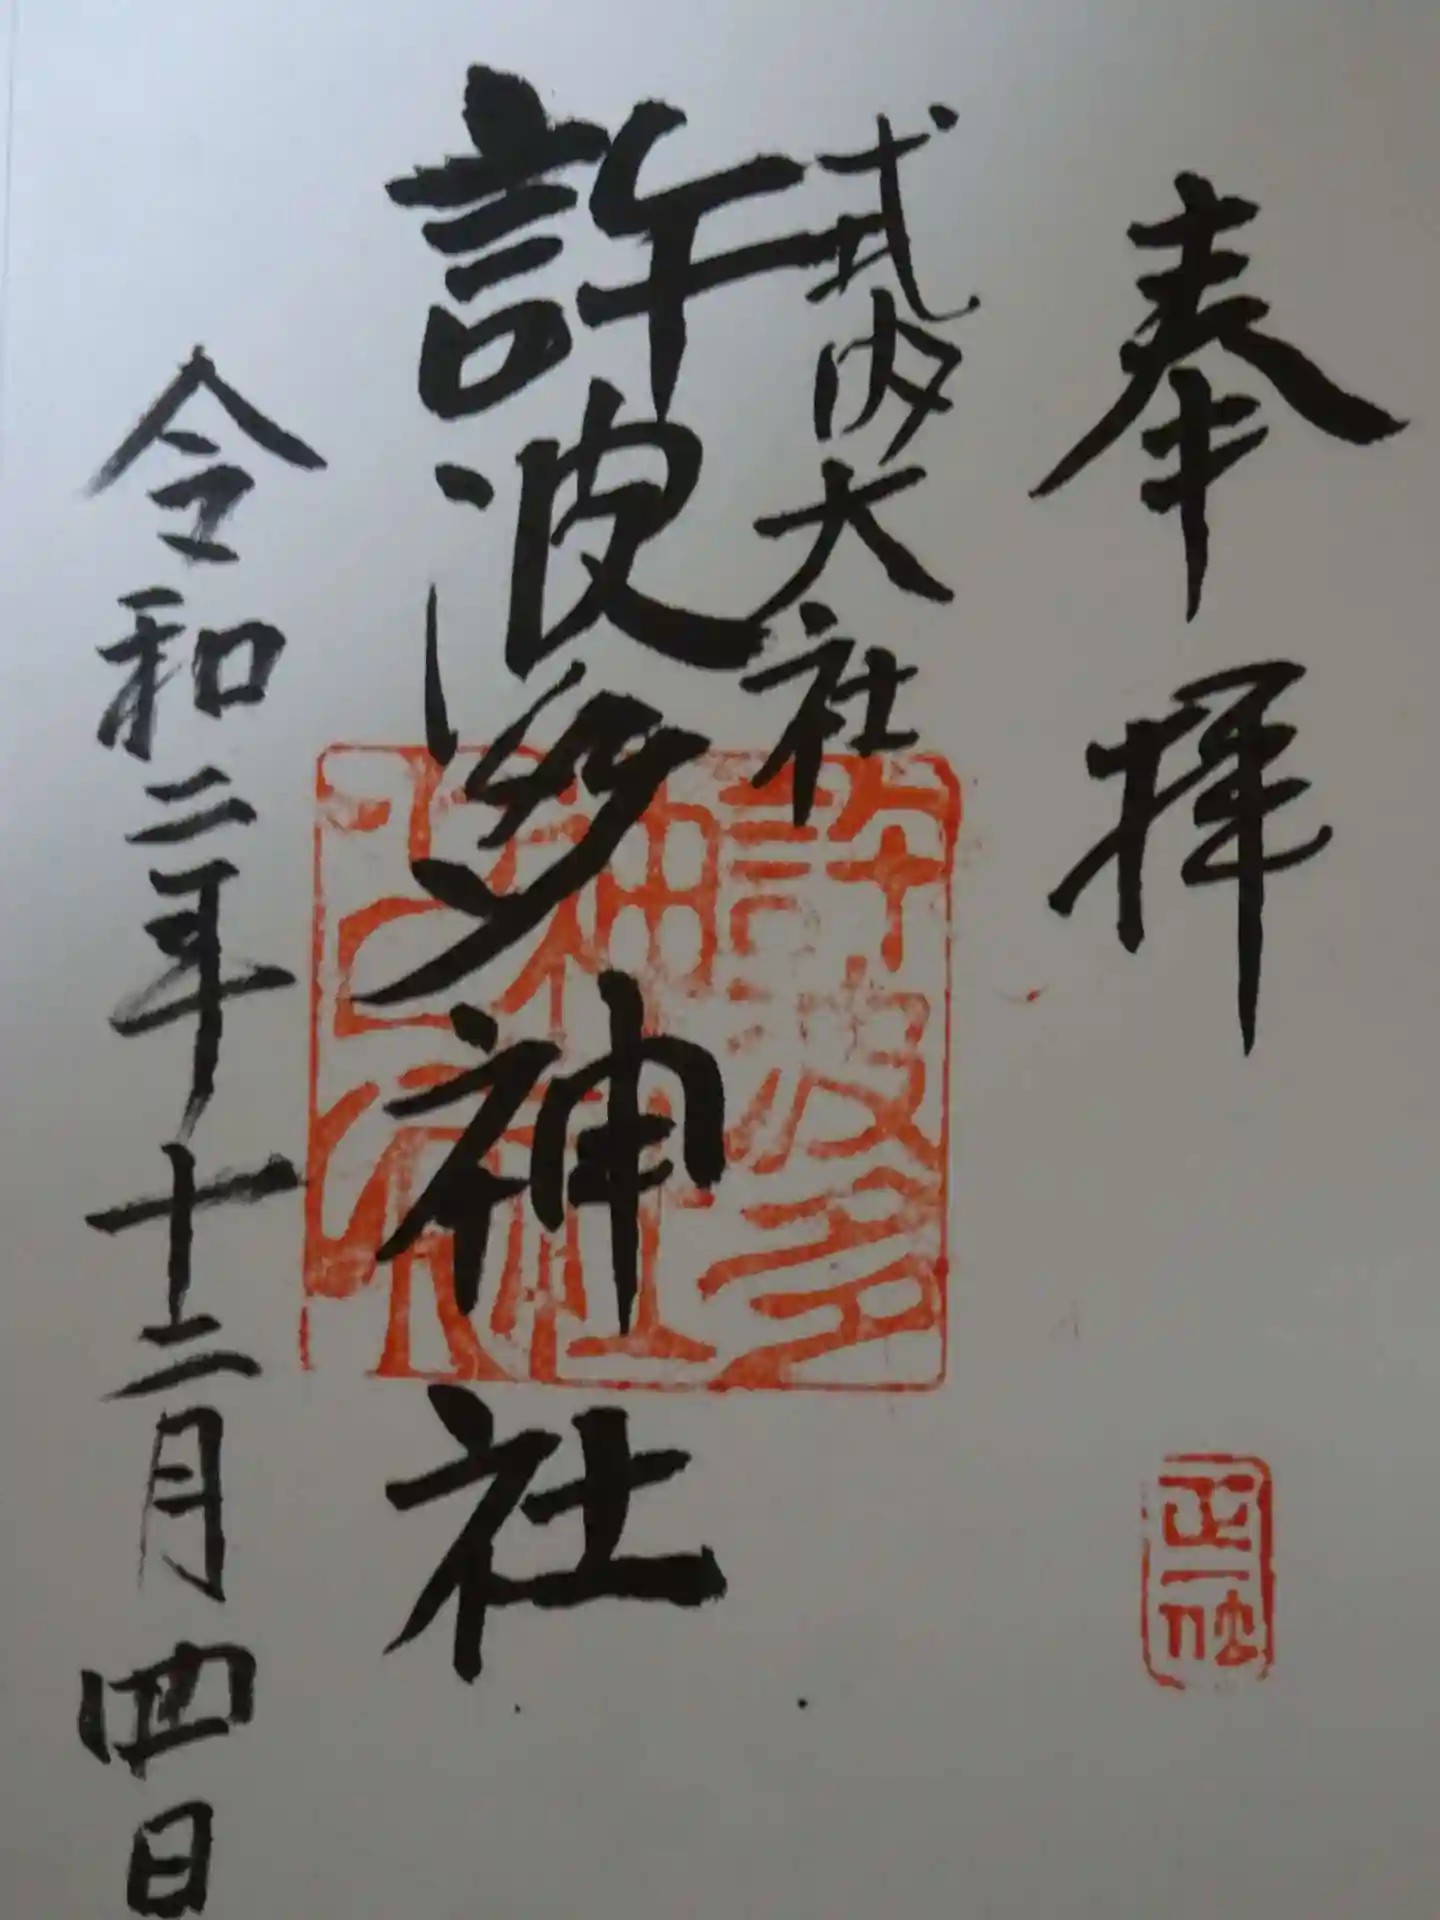 奉拝
式内大社
許波多神社
令和二年十二月四日
許波多
神社
正一位